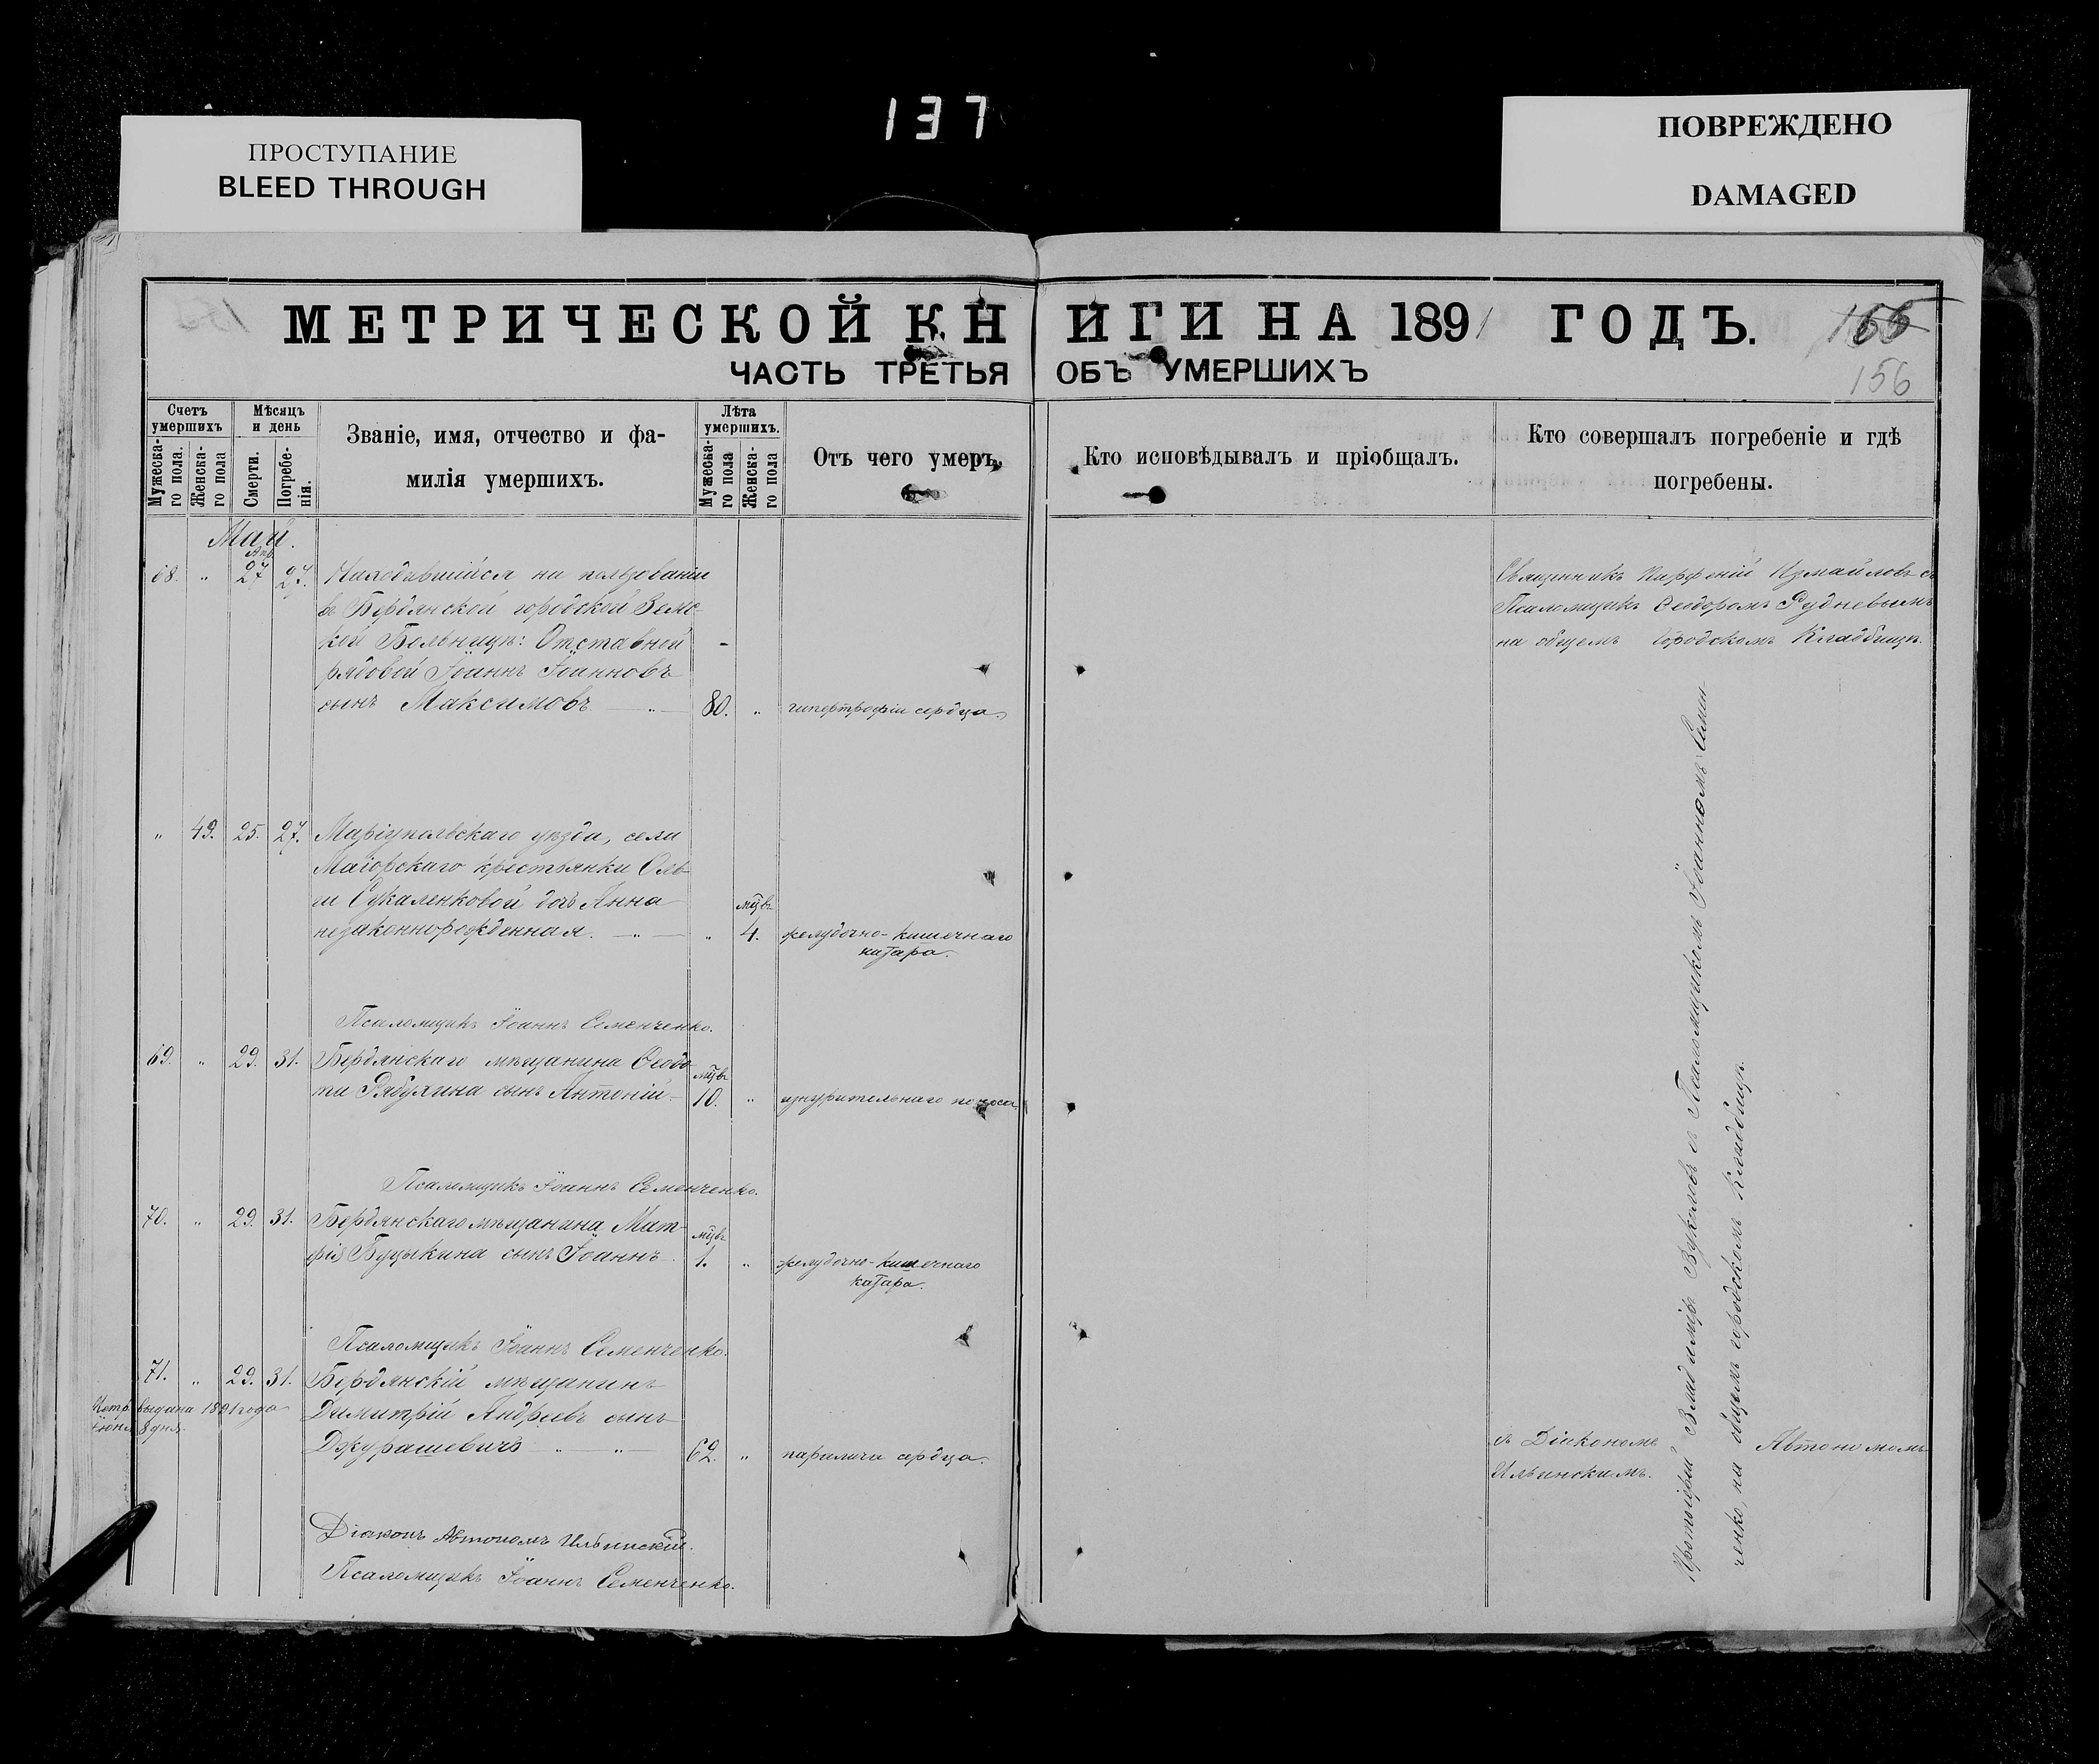 137
ПРОСТУПАНИЕ
BLEED THROUGH
ПОВРЕЖДЕНО
DAMAGED
МЕТРИЧЕСКОЙ КНИГИ НА 1891 ГОДЪ.
166
156
ЧАСТЬ ТРЕТЬЯ ОБЪ УМЕРШИХЪ
Счетъ умершихъ
Мужеска-го пола.
Женска-го пола
Мѣсяцъ и день
Смерти.
Погребе-нія.
Званіе, имя, отчество и фа-
милія умершихъ.
Лѣта умершихъ.
Мужеска-го пола
Женска-го пола
Отъ чего умеръ.
Кто исповѣдывалъ и пріобщалъ.
Кто совершалъ погребеніе и гдѣ
погребены.
Май.
Апр.
68. " 27 27. Находившійся на пользованіи
въ Бердянской городской Земс-
кой Больницѣ: Отставной
рядовой Іоаннъ Іоанновъ
сынъ Максимовъ — " — 80. " гипертрофіи сердца.
Священникъ Парфеній Измайловъ съ
Псаломщик. Ѳеодоромъ Рудневымъ
на общемъ Городскомъ Кладбищѣ.
" 49. 25. 27. Маріупольскаго уѣзда, села
Маіорскаго крестьянки Оль-
ги Сукаленковой дочь Анна
незаконнорожденная. — " — " мцвъ 4. желудочно-кишечнаго
катара.
Псаломщикъ Іоаннъ Семенченко.
69. " 29. 31. Бердянскаго мѣщанина Ѳеодо-
та Рябухина сынъ Антоній — мцвъ 10. " изнурительнаго поноса.
Псаломщикъ Іоаннъ Семенченко.
70. " 29. 31. Бердянскаго мѣщанина Мат-
фія Буцыкина сынъ Іоаннъ мцвъ 1. " желудочно-кишечнаго
катара.
Псаломщикъ Іоаннъ Семенченко.
71. " 29. 31. Бердянскій мѣщанинъ
Димитрій Андреевъ сынъ
Джурашевичъ " — " — 62. " паралича сердца.
Метр. выдана 1891 года
Іюня 8 дня.
Діаконъ Автономъ Ильинскій.
Псаломщикъ Іоаннъ Семенченко.
Протоіерей Владиміръ Вуколовъ съ Псаломщикомъ Іоанномъ Семен-
ченко, на общемъ городскомъ кладбищѣ.
съ Діакономъ Автономомъ
Ильинскимъ.